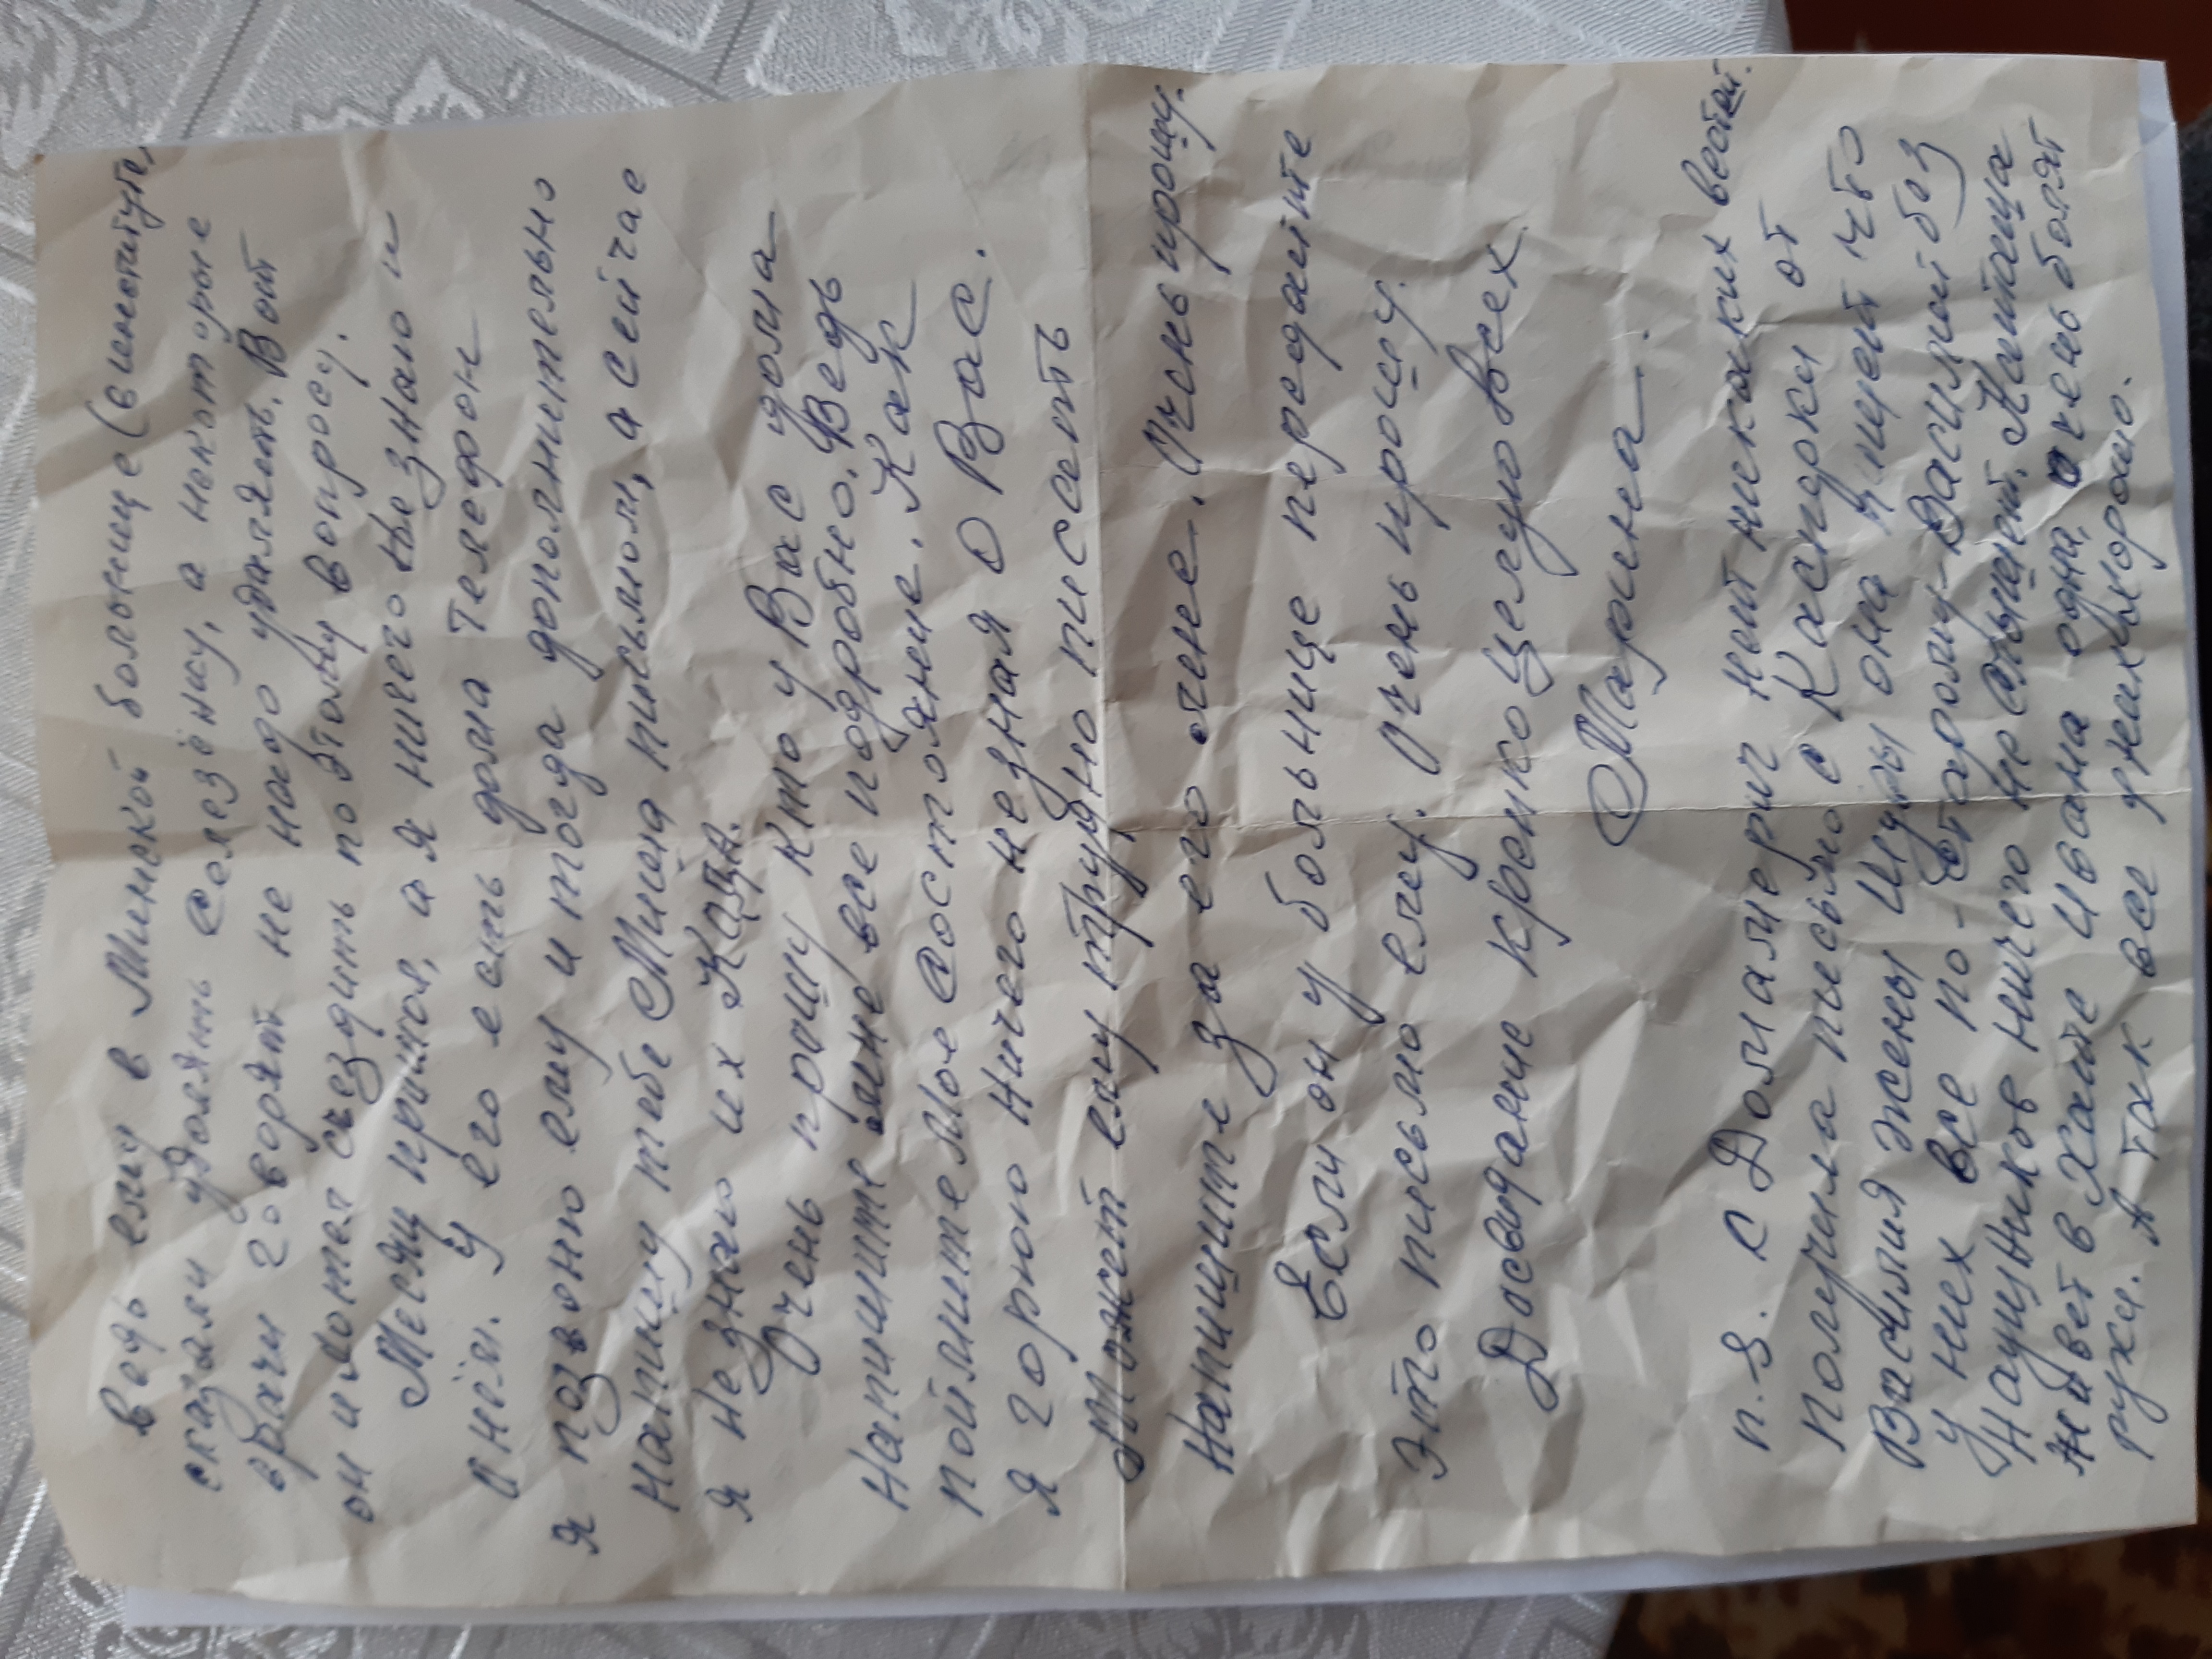 ведь ему в Минской больнице (в институте)
сказали удалять селезёнку, а некоторые
врачи говорят не надо удалят. Вот
он и хотел съездить по этому вопросу.
Месяц прошол, а я ничего незнаю и
о нём. У его есть дома телефон
я позвоню ему и тогда дополнительно
напишу тебе Миша письмом, а сейчас
я незнаю их кода.
Очень прошу кто у Вас дома
напишите мне все подробно. Ведь
поймите мое состояние. Как
я горюю ничего незная о Вас.
Может ему трудно писсать
напишите за его мене. Очень прошу.
Если он у больнице передайте
это письмо ему. Очень прошу.
Досвидание крепко целую всех.
Марина.
п.s. с Домамерич нет никаких вестей.
Получила письмо с Касперки от
Василия жены Шуры она пишет что
у них все по-старому Василий без
Наушников ничего не слышит,
живет в хате Ивана одна, очень болят
руки. А так все у них хорошо.